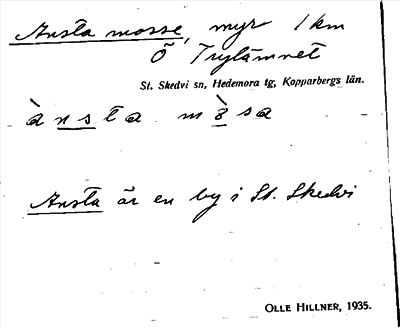 Ansta mosse, myr 1 km
Ö Trytämnet
St. Skedvi sn, Hedemora tg, Kopparbergs län.
ànsta mòsa
Ansta är en by i St. Skedvi
OLLE HILLNER, 1935.